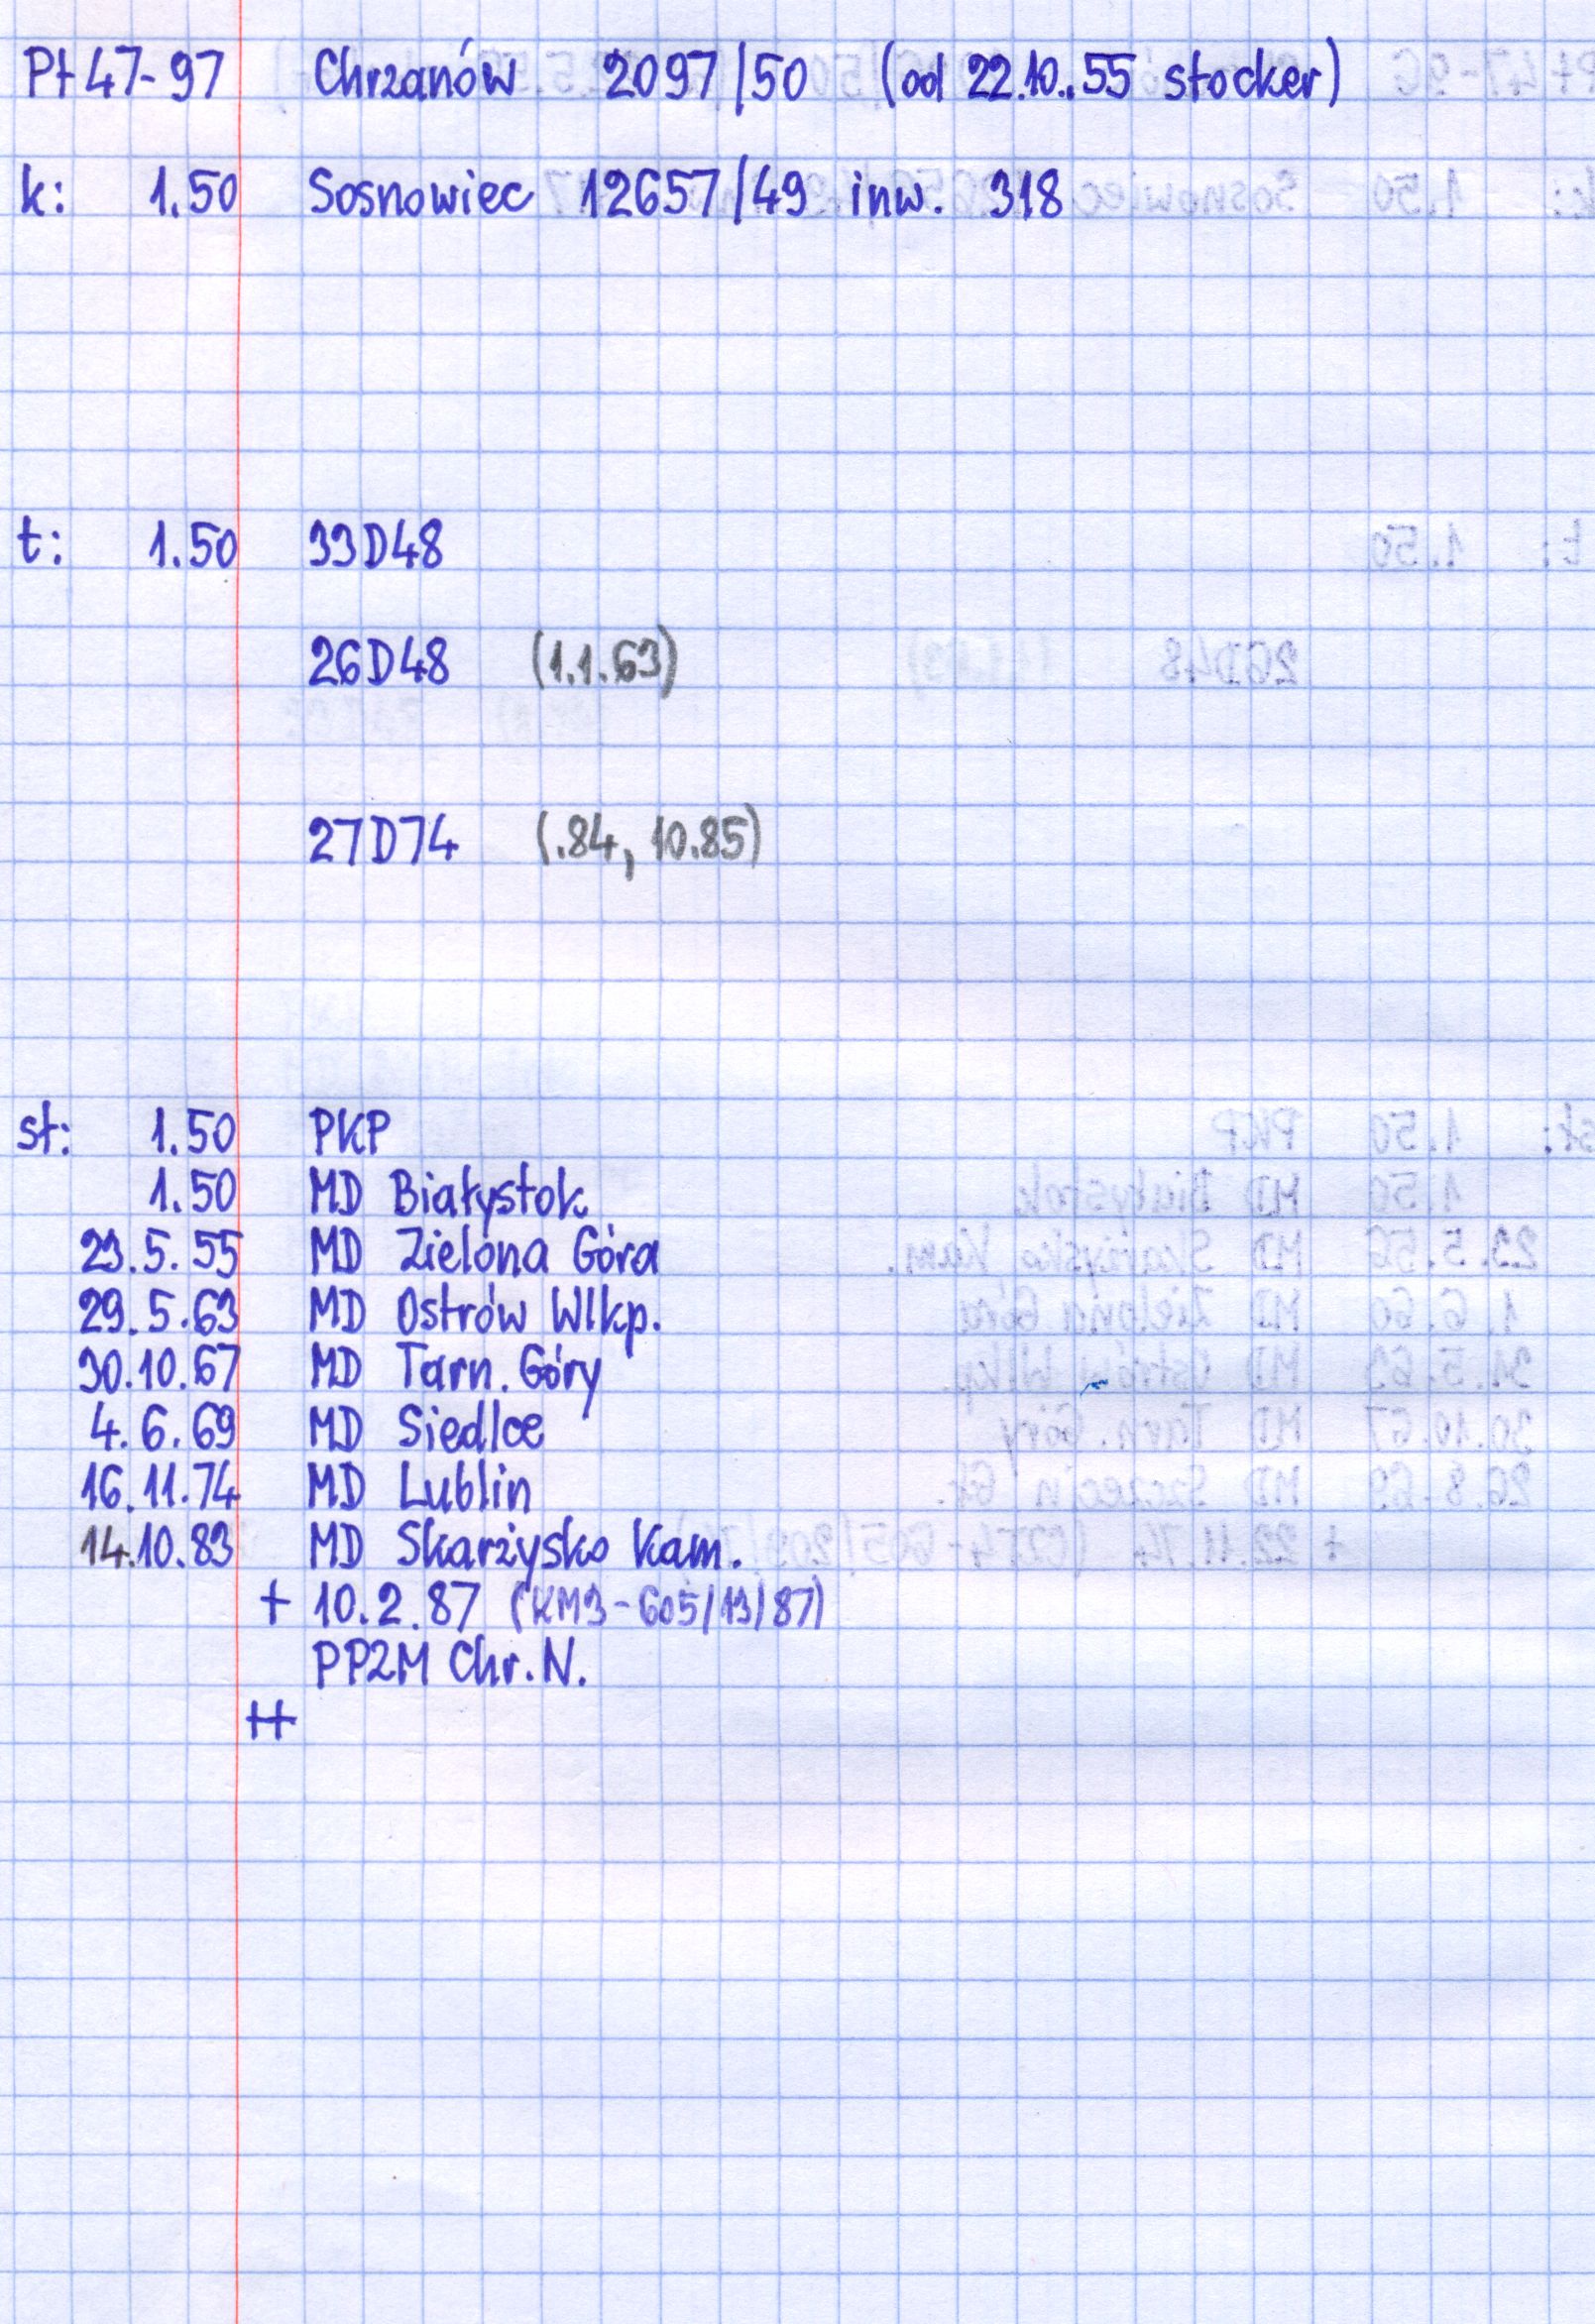 Pt47-97 Chrzanów 2097/50 (od 22.10.55 stocker)
k: 1.50 Sosnowiec 12657/49 inw. 318
t: 1.50 33D48
26D48 (1.1.63)
27D74 (.84, 10.85)
st: 1.50 PKP
1.50 MD Białystok
23.5.55 MD Zielona Góra
29.5.63 MD Ostrów Wlkp.
30.10.67 MD Tarn. Góry
4.6.69 MD Siedlce
16.11.74 MD Lublin
14.10.83 MD Skarżysko Kam.
+ 10.2.87 (KM3-605/13/87)
PPZM Chr. N.
++